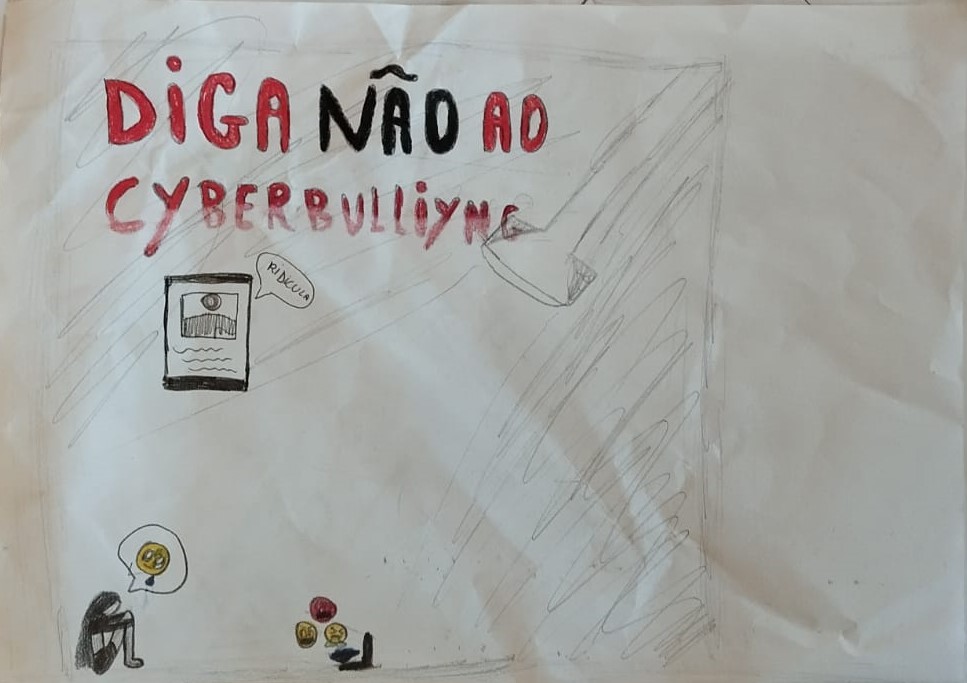 DIGA NÃO AO
CYBERBULLIYNG
RIDICULA